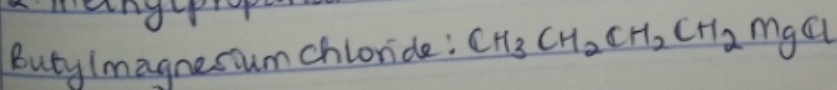 Butylmagnesium chloride: CH3 CH2 CH2 CH2 MgCl